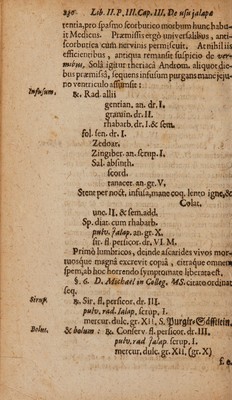 230 Lib. II. P. III. Cap. III. De usu jalapæ
rentia, pro spasmo scorbutico morbum hunc habu-
it Medicus. Præmissis ergò universalibus, anti-
scorbutica cum nervinis permiscuit. Att nihil iis
efficientibus, antiqua remansit suspicio de ver-
mibus, Solâ igitur theriacâ Androm. aliquot die-
bus præmissâ, sequens infusum purgans mane jeju-
no ventriculo assumsit:
Infusum, ℞. Rad allii
gentian. an. dr. I.
gramin. dr. II.
rhabarb. dr. I. & sem.
fol. sen. dr. I.
Zedoar.
Zingiber. an. scrup. I.
Sal. absinth.
scord.
tanacet. an. gr. V.
Stent per noct. infusa, mane coq. lento igne, &
Colat.
unc. II. & sem. add.
Sp. diat. cum rhabarb.
pulv. jalap. an. gr. X.
sir. fl. persicor. dr. VI. M.
Primò lumbricos, deinde ascarides vivos mor-
tuosque magnâ excrevit copiâ, citraque omnem
spem, ab hoc horrendo symptomate liberata est.
§. 6. D. Michael in Colleg. MS. citato ordinat
seq.
Sirup. ℞. Sir. fl. persicor. dr. III.
pulv. rad. jalap. scrup. I.
mercur. dulc. gr. XII. S. Purgir-Säfftlein.
Bolus. & bolum: ℞. Conserv. fl. persicor. dr. III.
pulv. rad jalap scrup. I.
mercur. dulc. gr. XII. (gr. X)